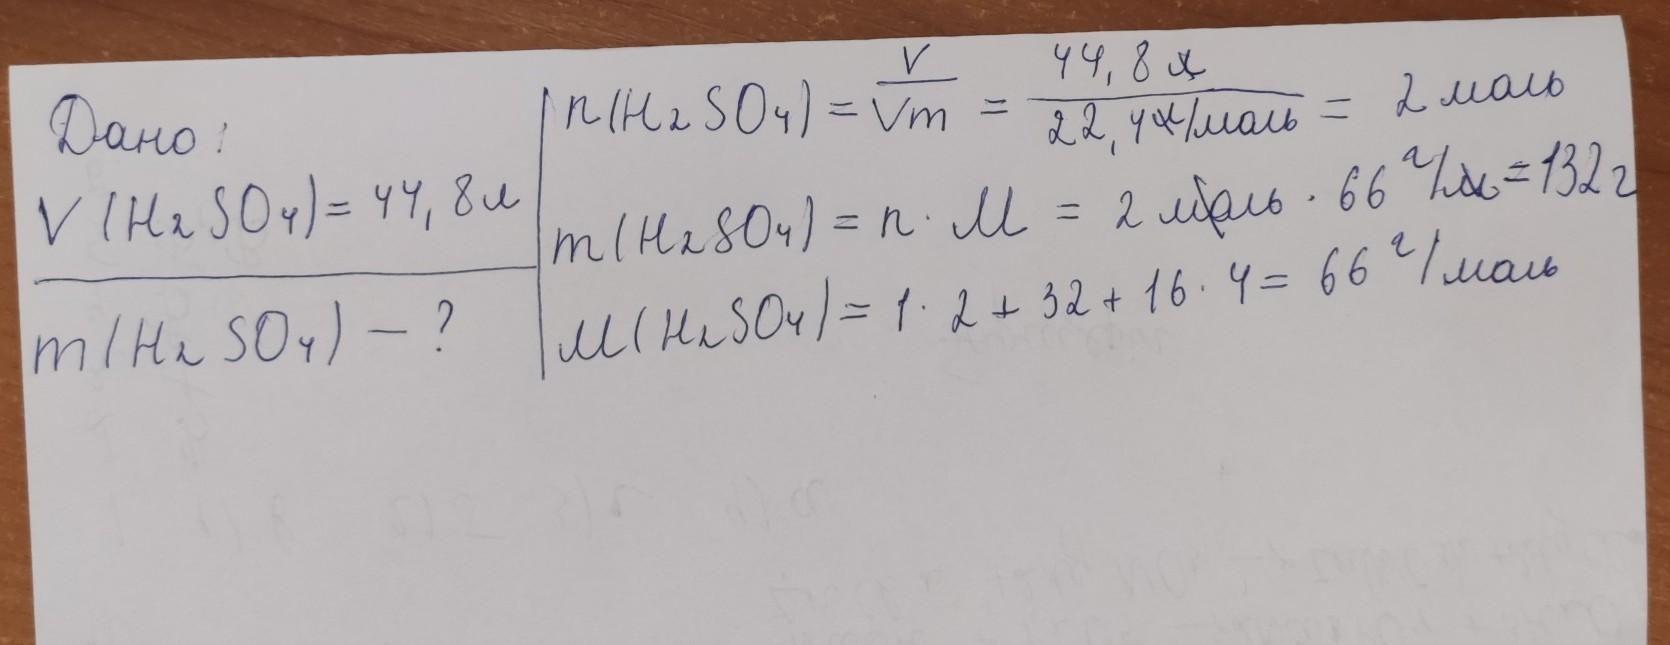 Дано:
V(H₂SO₄)= 44,8л
m(H₂SO₄) – ?
n(H₂SO₄) = V/Vm = 44,8 л/22,4л/моль = 2 моль
m(H₂SO₄) = n · M = 2 моль · 66 г/м = 132 г
M(H₂SO₄) = 1 · 2 + 32 + 16 · 4 = 66 г/моль